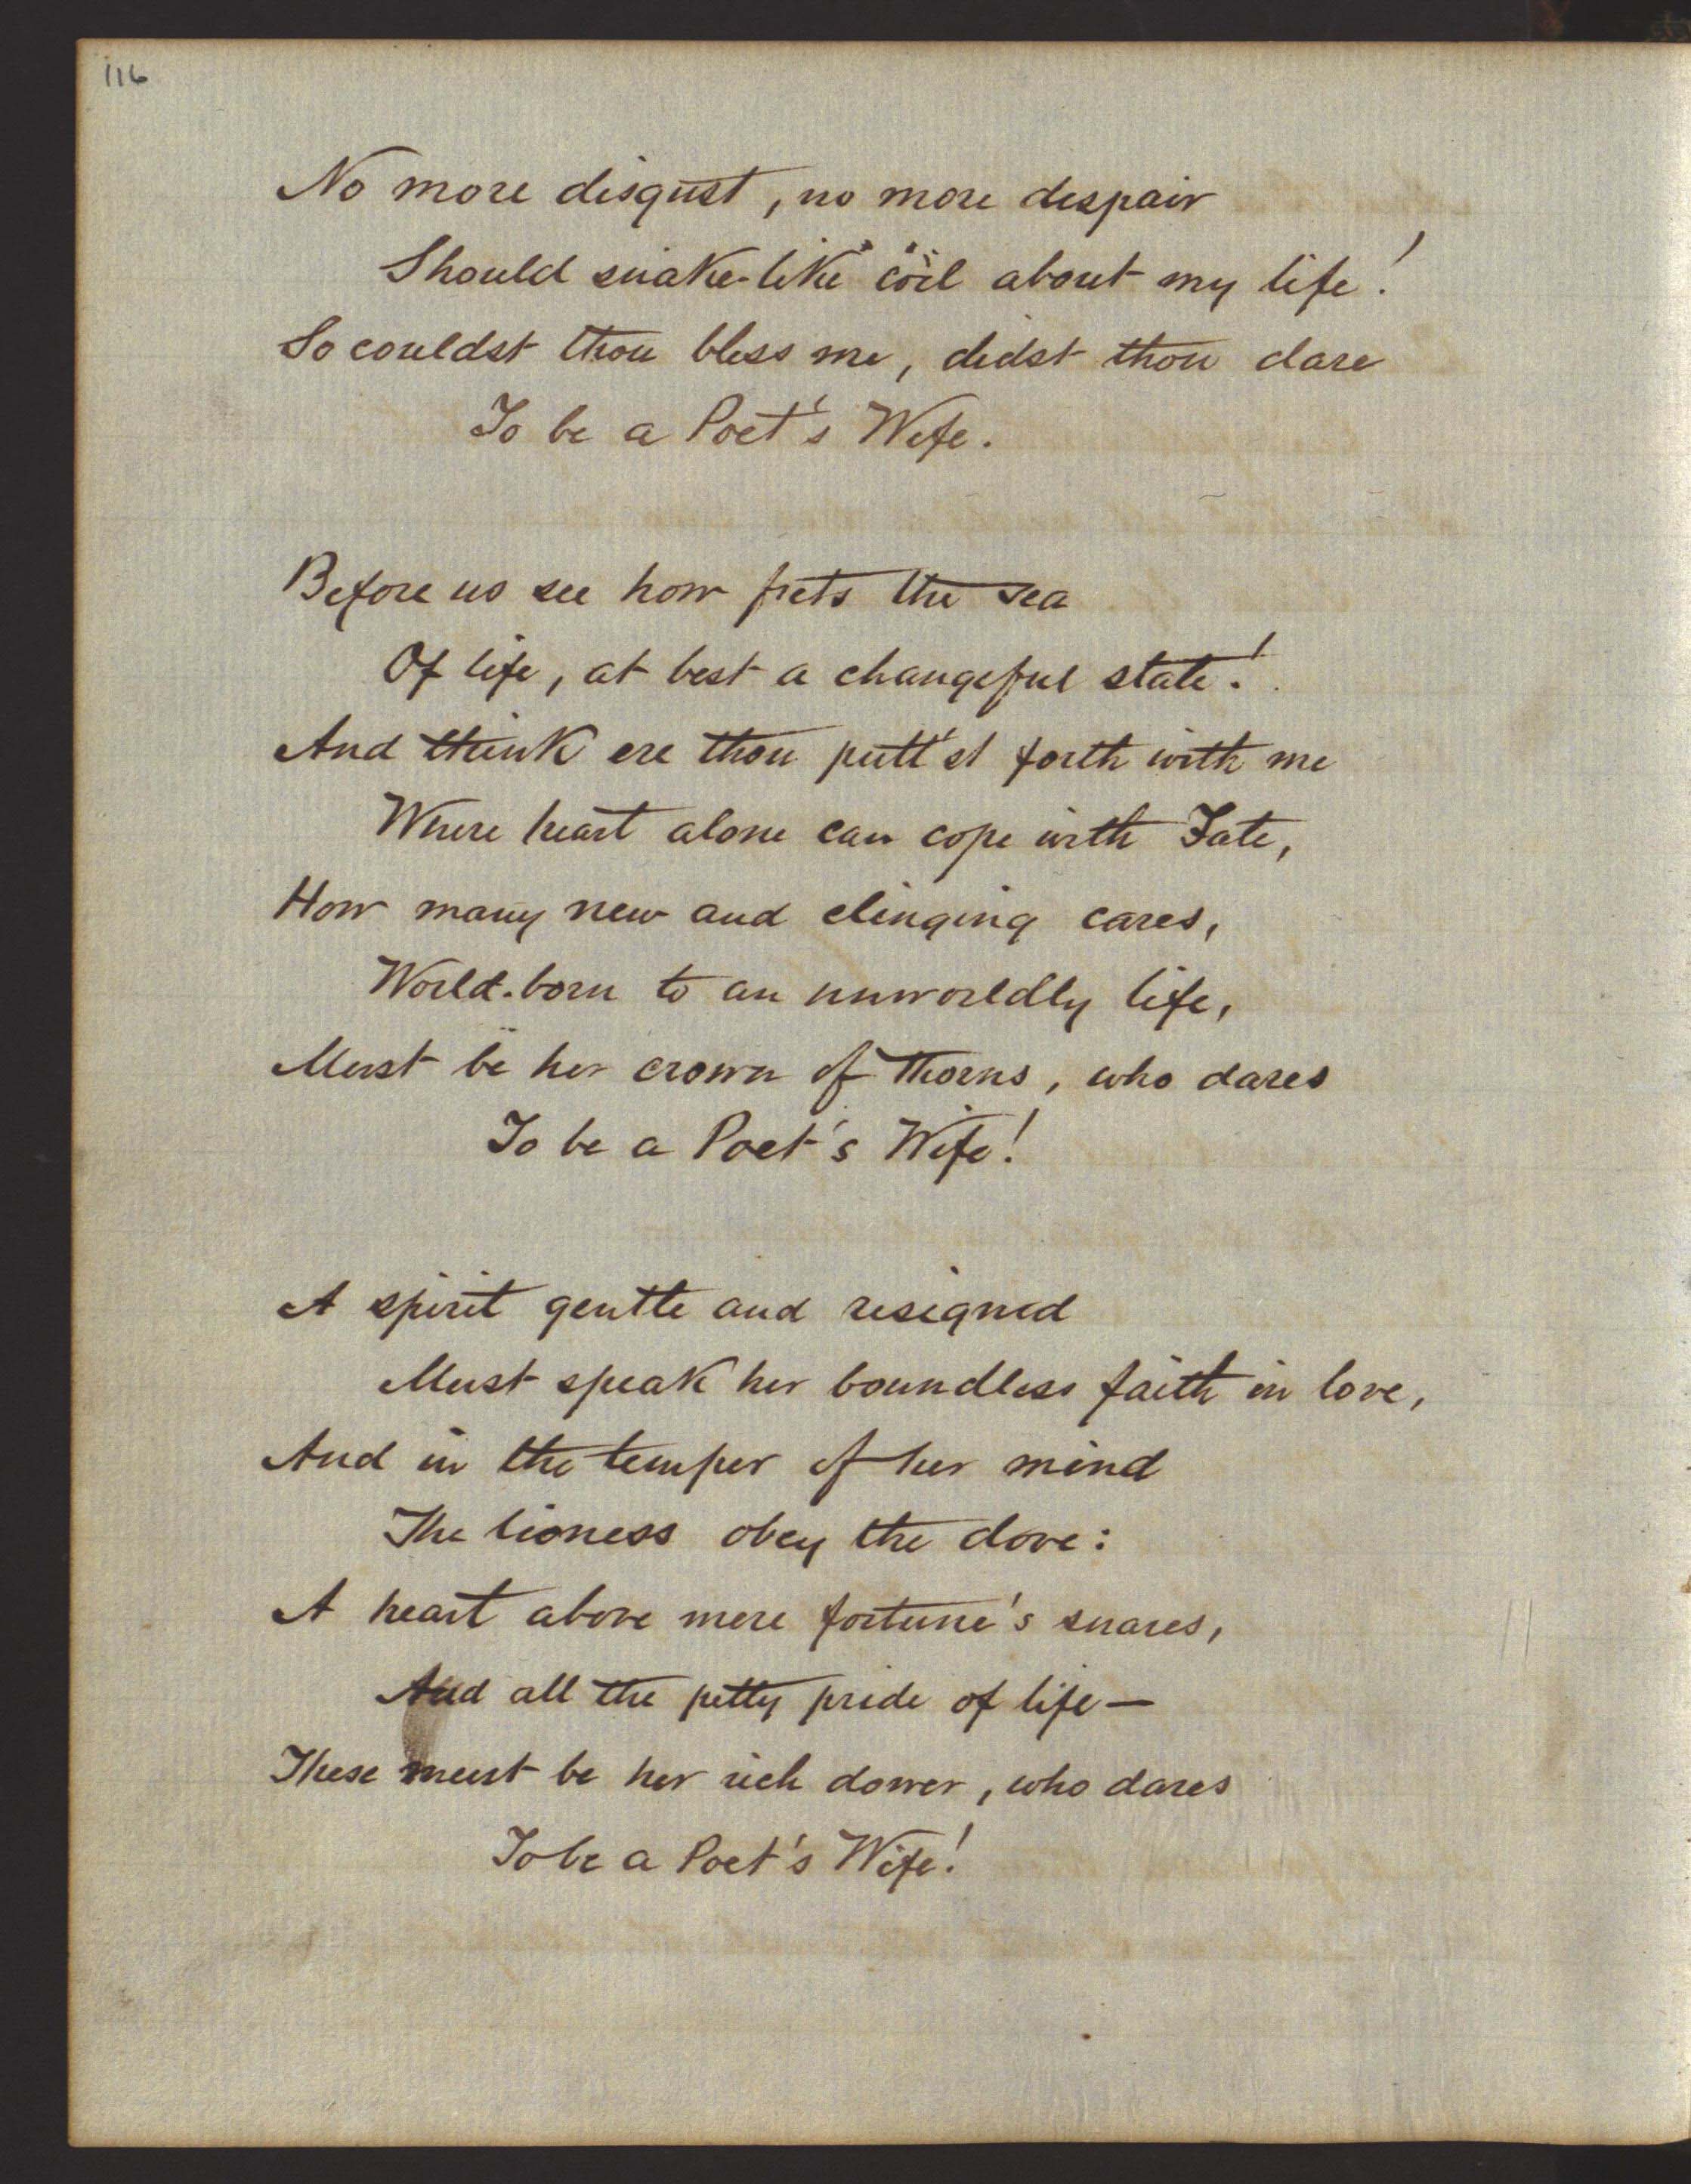 116
No more disgust, no more despair
Should snake-like coil about my life!
So couldst thou bless me, didst thou dare
To be a Poet's Wife.
Before us see how frets the sea
Of life, at best a changeful state!
And think ere thou putt'st forth with me
Where heart alone can cope with Fate,
How many new and clinging cares,
World-born to an unworldly life,
Must be her crown of thorns, who dares
To be a Poet's Wife!
A spirit gentle and resigned
Must speak her boundless faith in love,
And in the temper of her mind
The lioness obey the dove:
A heart above mere fortune's snares,
And all the petty pride of life—
These must be her rich dower, who dares
To be a Poet's Wife!